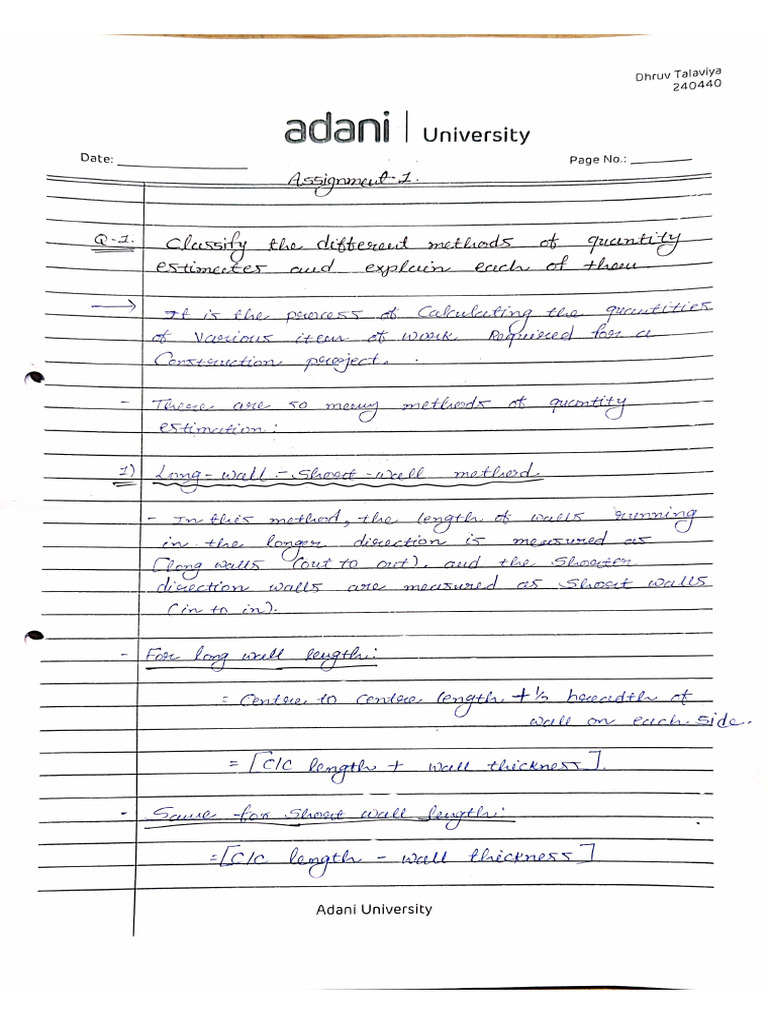 Dhruv Talaviya
240440
adani | University
Date: Page No.:
Assignment-1.
Q-1. Classify the different methods of quantity
estimates and explain each of them
→ It is the process of Calculating the quantities
of Various item of work Required for a
Construction project.
- There are so many methods of quantity
estimation:
1) Long-wall - Short-wall method.
- In this method, the length of walls running
in the longer direction is measured as
long walls (out to out), and the Shorter
direction walls are measured as Short walls
(in to in).
- For long wall length:
= Centre to centre length + ½ breadth of
wall on each side.
= [C/C length + wall thickness].
- Same for Short wall length:
= [C/C length - wall thickness]
Adani University